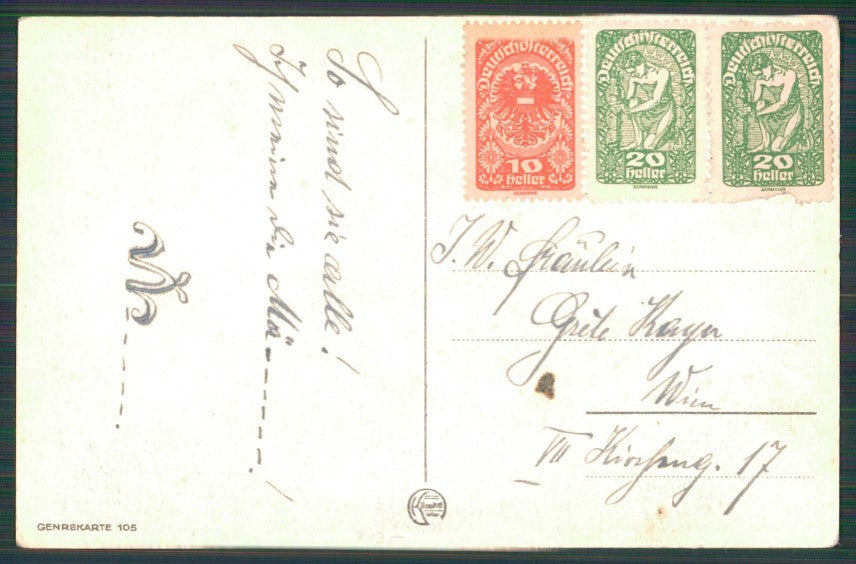 So sind sie alle!
Ich meine die Mä------!
Deutschösterreich
10
Heller
Deutschösterreich
20
Heller
Deutschösterreich
20
Heller
I. W. Fräulein
Grete Kayer
Wien
VII Kircheng. 17
GENREKARTE 105